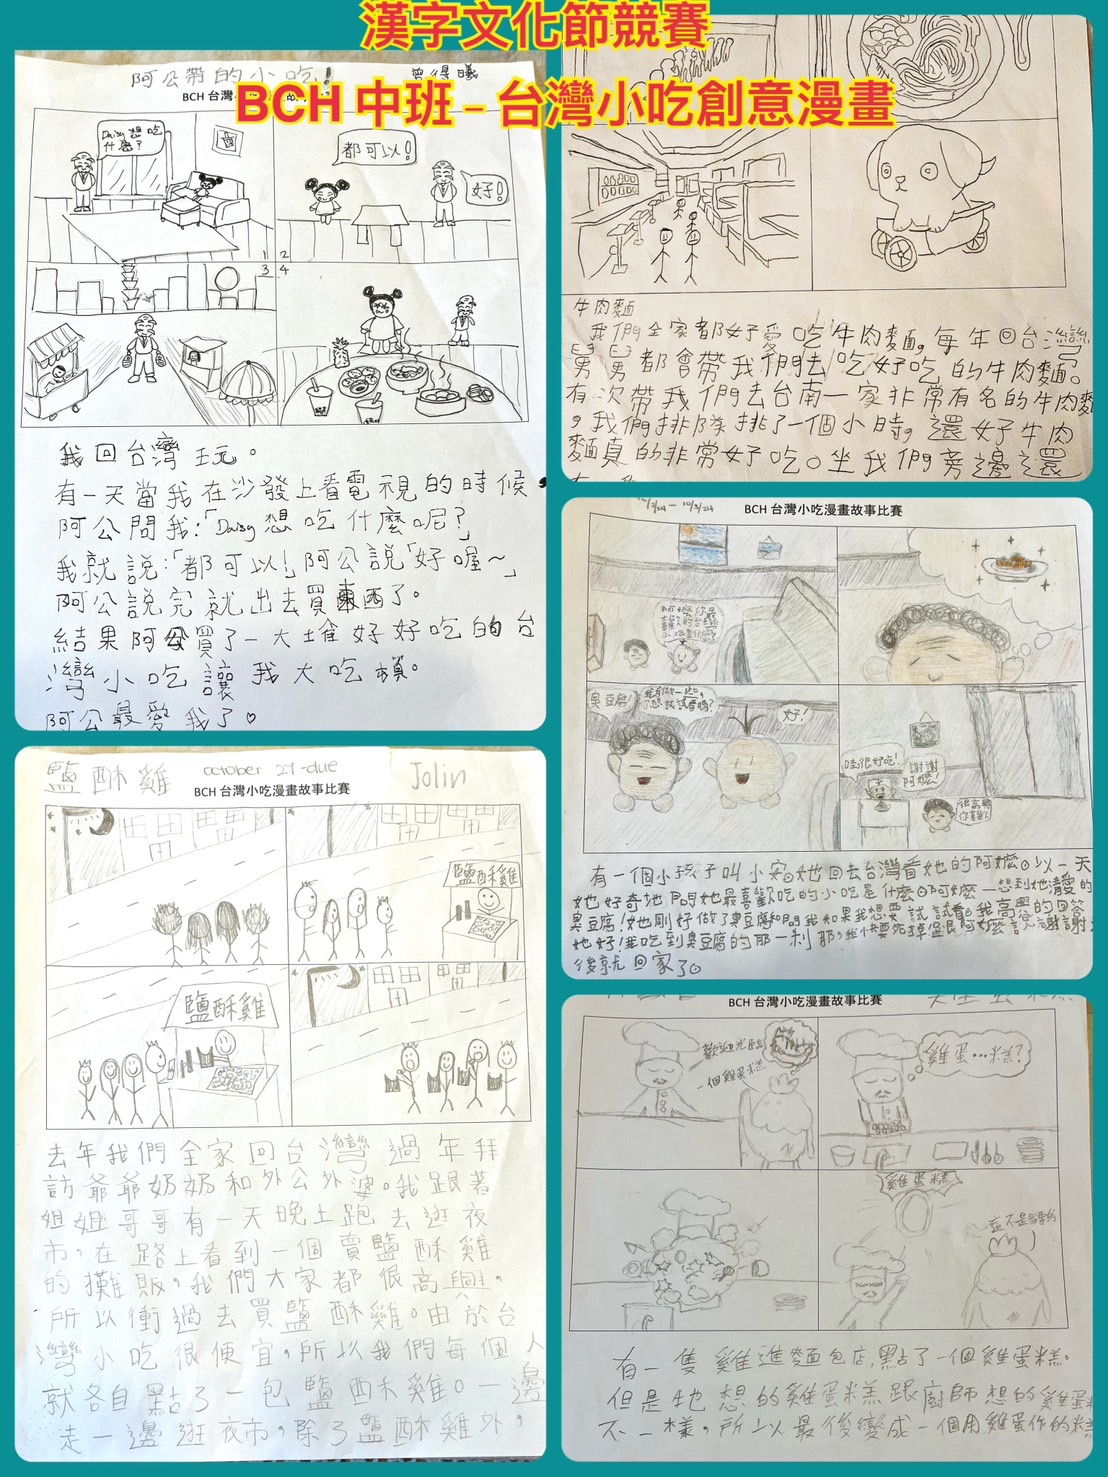 漢字文化節競賽
BCH 中班 – 台灣小吃創意漫畫
阿公帶的小吃!
BCH 台灣小
Daisy想吃
什麼?
都可以!
好!
1 2
3 4
我回台灣玩。
有一天當我在沙發上看電視的時候,
阿公問我:「Daisy想吃什麼呢?
我就說:「都可以!」阿公說「好喔~」
阿公說完就出去買東西了。
結果阿公買了一大堆好好吃的台
灣小吃讓我大吃
阿公最愛我了♡
牛肉麵
我們全家都好愛吃牛肉麵。每年回台灣
舅舅都會帶我們去吃好吃的牛肉麵。
有次帶我們去台南一家非常有名的牛肉麵
,我們排隊排了一個小時。還好牛肉
麵真的非常好吃。坐我們旁邊還
鹽酥雞
october 27-due
Jolin
BCH 台灣小吃漫畫故事比賽
鹽酥雞
鹽酥雞
去年我們全家回台灣過年拜
訪爺爺奶奶和外公外婆。我跟著
姐姐哥哥有一天晚上跑去逛夜
市。在路上看到一個賣鹽酥雞
的攤販。我們大家都很高興。
所以衝過去買鹽酥雞。由於台
灣小吃很便宜。所以我們每個人
就各自點了一包鹽酥雞。一邊
走一邊逛夜市。除了鹽酥雞外,
BCH 台灣小吃漫畫故事比賽
阿嬤你最
喜歡的台灣
小吃是什麼
臭豆腐!
我有做一些,
想試看嗎?
好!
哇很好吃!
謝謝
阿嬤!
很高興
你喜歡
有一個小孩子叫小安。她回去台灣看她的阿嬤。以一天
她好奇地問她最喜歡吃的小吃是什麼。阿嬤一想到她愛的
臭豆腐!她剛好做了臭豆腐和問我如果我想要試試看。我高興的回答
她好!我吃到臭豆腐的那一刹那,我快要死掉。跟阿嬤說謝謝
後就回家了。
BCH 台灣小吃漫畫故事比賽
歡迎光臨
一個雞蛋糕
雞蛋…糕?
雞蛋糕
這不是我要的
有一隻雞進麵包店,點了一個雞蛋糕。
但是牠想的雞蛋糕跟廚師想的雞蛋
不一樣。所以最後變成一個用雞蛋作的糕